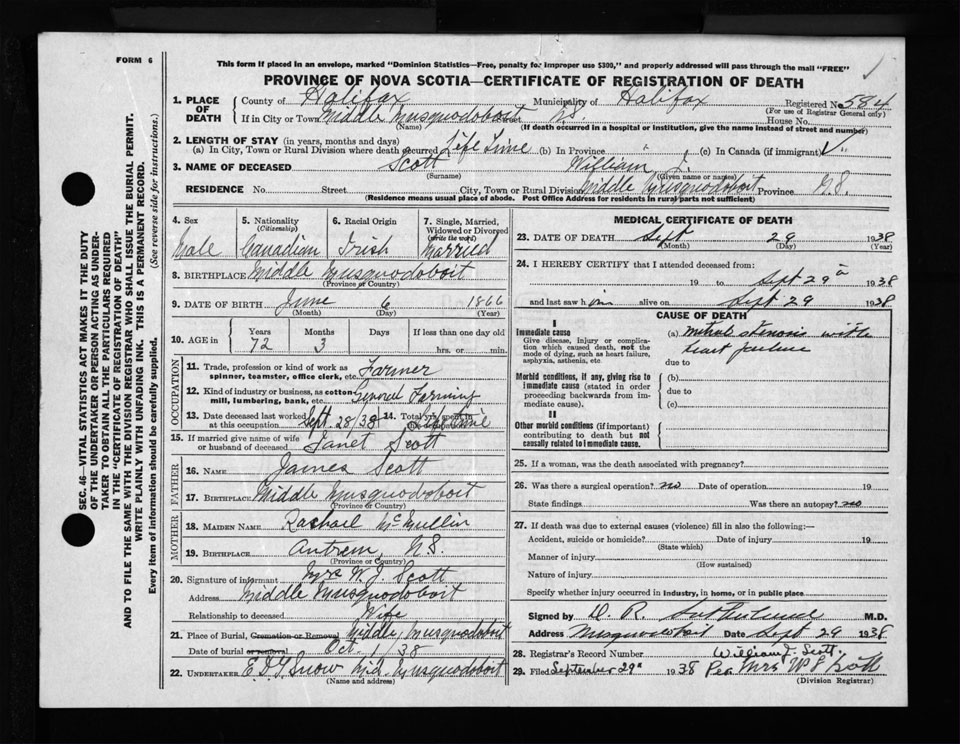 FORM 6
This form if placed in an envelope, marked "Dominion Statistics—Free, penalty for improper use $300," and properly addressed will pass through the mail "FREE"
PROVINCE OF NOVA SCOTIA—CERTIFICATE OF REGISTRATION OF DEATH
1. PLACE OF DEATH County of Halifax Municipality of Halifax Registered No. 584
(For use of Registrar General only)
If in City or Town Middle Musquodoboit N.S. House No.
(Name) (If death occurred in a hospital or institution, give the name instead of street and number)
2. LENGTH OF STAY (in years, months and days)
(a) In City, Town or Rural Division where death occurred Life Time (b) In Province " (c) In Canada (if immigrant)
3. NAME OF DECEASED Scott William J.
(Surname) (Given name or names)
RESIDENCE No. Street City, Town or Rural Division Middle Musquodoboit Province N.S.
(Residence means usual place of abode. Post Office Address for residents in rural parts not sufficient)
4. Sex Male
5. Nationality (Citizenship) Canadian
6. Racial Origin Irish
7. Single, Married, Widowed or Divorced (write the word) Married
8. BIRTHPLACE Middle Musquodoboit
(Province or Country)
9. DATE OF BIRTH June 6 1866
(Month) (Day) (Year)
10. AGE in Years 72 Months 3 Days If less than one day old hrs. or min.
OCCUPATION
11. Trade, profession or kind of work as spinner, teamster, office clerk, etc. Farmer
12. Kind of industry or business, as cotton mill, lumbering, bank, etc. General Farming
13. Date deceased last worked at this occupation Sept. 28/38 14. Total yrs. spent in Life Time
15. If married give name of wife or husband of deceased Janet Scott
FATHER
16. NAME James Scott
17. BIRTHPLACE Middle Musquodoboit
(Province or Country)
MOTHER
18. MAIDEN NAME Rachael McMullin
19. BIRTHPLACE Antrim, N.S.
(Province or Country)
20. Signature of informant Mrs W. J. Scott
Address Middle Musquodoboit
Relationship to deceased Wife
21. Place of Burial, Cremation or Removal Middle Musquodoboit
Date of burial or removal Oct. 1/38
22. UNDERTAKER Snow Mid. Musquodoboit
(Name and address)
MEDICAL CERTIFICATE OF DEATH
23. DATE OF DEATH Sept 29 1938
(Month) (Day) (Year)
24. I HEREBY CERTIFY that I attended deceased from
19 to Sept 29 1938
and last saw him alive on Sept 29 1938
CAUSE OF DEATH
I
Immediate cause (a) mitral stenosis with
Give disease, injury or complication which caused death, not the mode of dying, such as heart failure, asphyxia, asthenia, etc heart failure
due to
Morbid conditions, if any, giving rise to immediate cause (stated in order proceeding backwards from immediate cause). (b)
due to
(c)
II
Other morbid conditions (if important) contributing to death but not causally related to immediate cause.
25. If a woman, was the death associated with pregnancy?
26. Was there a surgical operation? no Date of operation 19
State findings Was there an autopsy? no
27. If death was due to external causes (violence) fill in also the following:—
Accident, suicide or homicide? Date of injury 19
(State which)
Manner of injury
(How sustained)
Nature of injury
Specify whether injury occurred in industry, in home, or in public place
Signed by D. R. Sutherland M.D.
Address Musquodoboit Date Sept 29 1938
28. Registrar's Record Number William J. Scott.
29. Filed September 29 1938 Per Mrs W J Scott
(Division Registrar)
SEC. 46—VITAL STATISTICS ACT MAKES IT THE DUTY
OF THE UNDERTAKER OR PERSON ACTING AS UNDER-
TAKER TO OBTAIN ALL THE PARTICULARS REQUIRED
IN THE "CERTIFICATE OF REGISTRATION OF DEATH"
AND TO FILE THE SAME WITH THE DIVISION REGISTRAR WHO SHALL ISSUE THE BURIAL PERMIT.
WRITE PLAINLY WITH UNFADING INK. THIS IS A PERMANENT RECORD.
Every item of information should be carefully supplied. (See reverse side for instructions.)